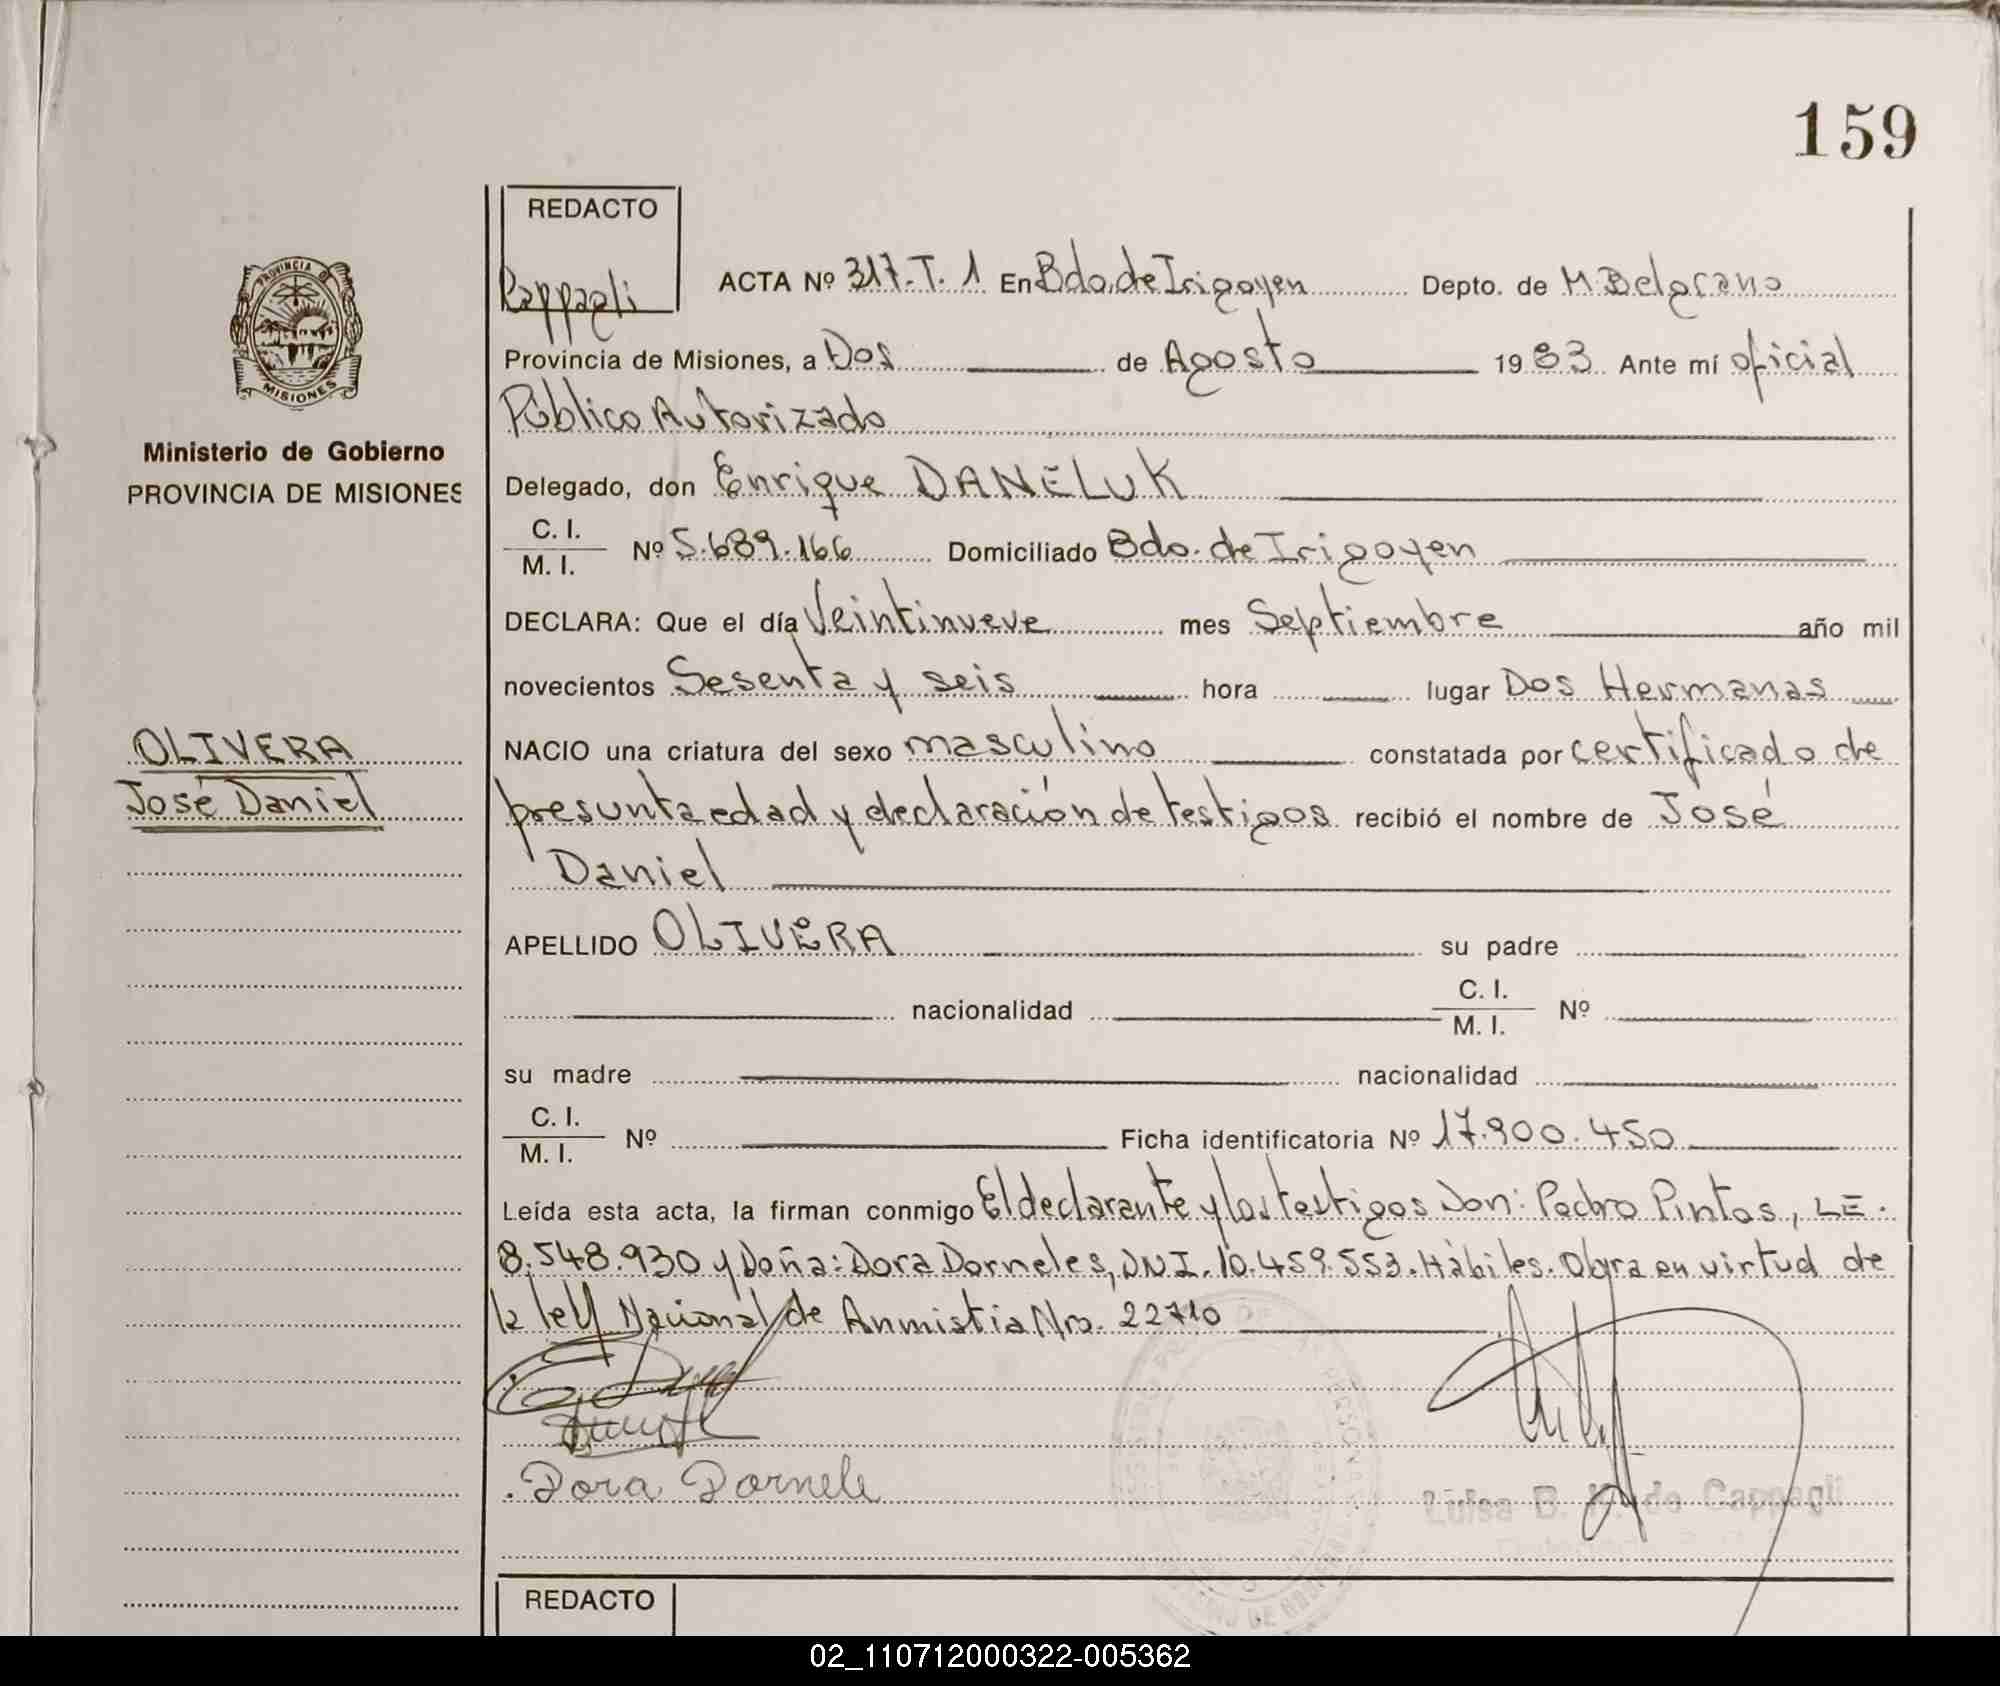 159
REDACTO
Cappagli
ACTA Nº 317.T.1 En Bdo. de Irigoyen Depto. de M Belgrano
Provincia de Misiones, a Dos de Agosto 1983. Ante mí oficial
Público Autorizado
Delegado, don Enrique DANELUK
C. I.
M. I. Nº 5.689.166 Domiciliado Bdo. de Irigoyen
DECLARA: Que el día Veintinueve mes Septiembre año mil
novecientos Sesenta y seis hora lugar Dos Hermanas
NACIO una criatura del sexo masculino constatada por certificado de
presunta edad y declaración de testigos recibió el nombre de José
Daniel
APELLIDO OLIVERA su padre
nacionalidad C. I.
M. I. Nº
su madre nacionalidad
C. I.
M. I. Nº Ficha identificatoria Nº 17.900.450
Leída esta acta, la firman conmigo El declarante y los testigos Don: Pedro Pintos, LE.
8.548.930 y Doña: Dora Dorneles, DNI. 10.459.553. Hábiles. Obra en virtud de
la ley Nacional de Anmistia Nro. 22710
Dora Dornele
Luisa B. de Cappagli
REDACTO
PROVINCIA DE
MISIONES
Ministerio de Gobierno
PROVINCIA DE MISIONES
OLIVERA
José Daniel
02_110712000322-005362